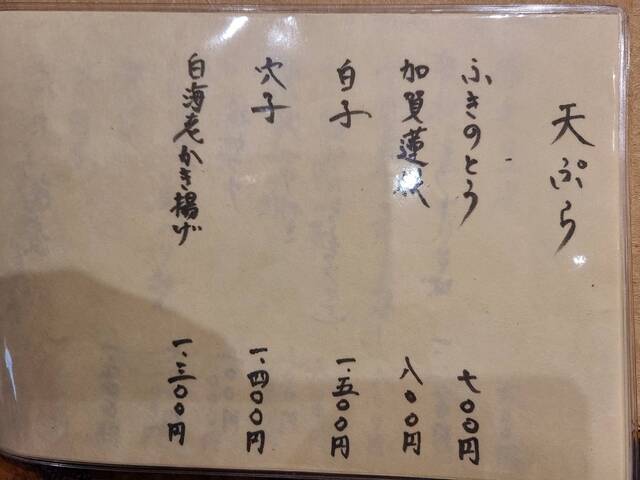 天ぷら
ふきのとう 七〇〇円
加賀蓮根 八〇〇円
白子 一、五〇〇円
穴子 一、四〇〇円
白海老かき揚げ 一、三〇〇円